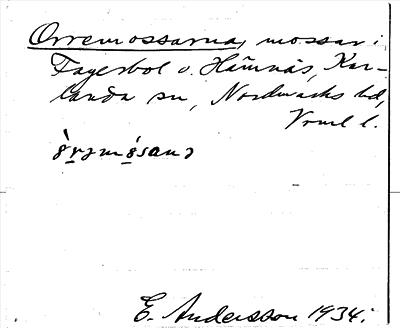 Orremossarna, mossar i
Fagerbol o. Hämnäs, Kar-
landa sn, Nordmarks hd,
Vrml l.
òrəmósanɔ
E. Andersson 1934.